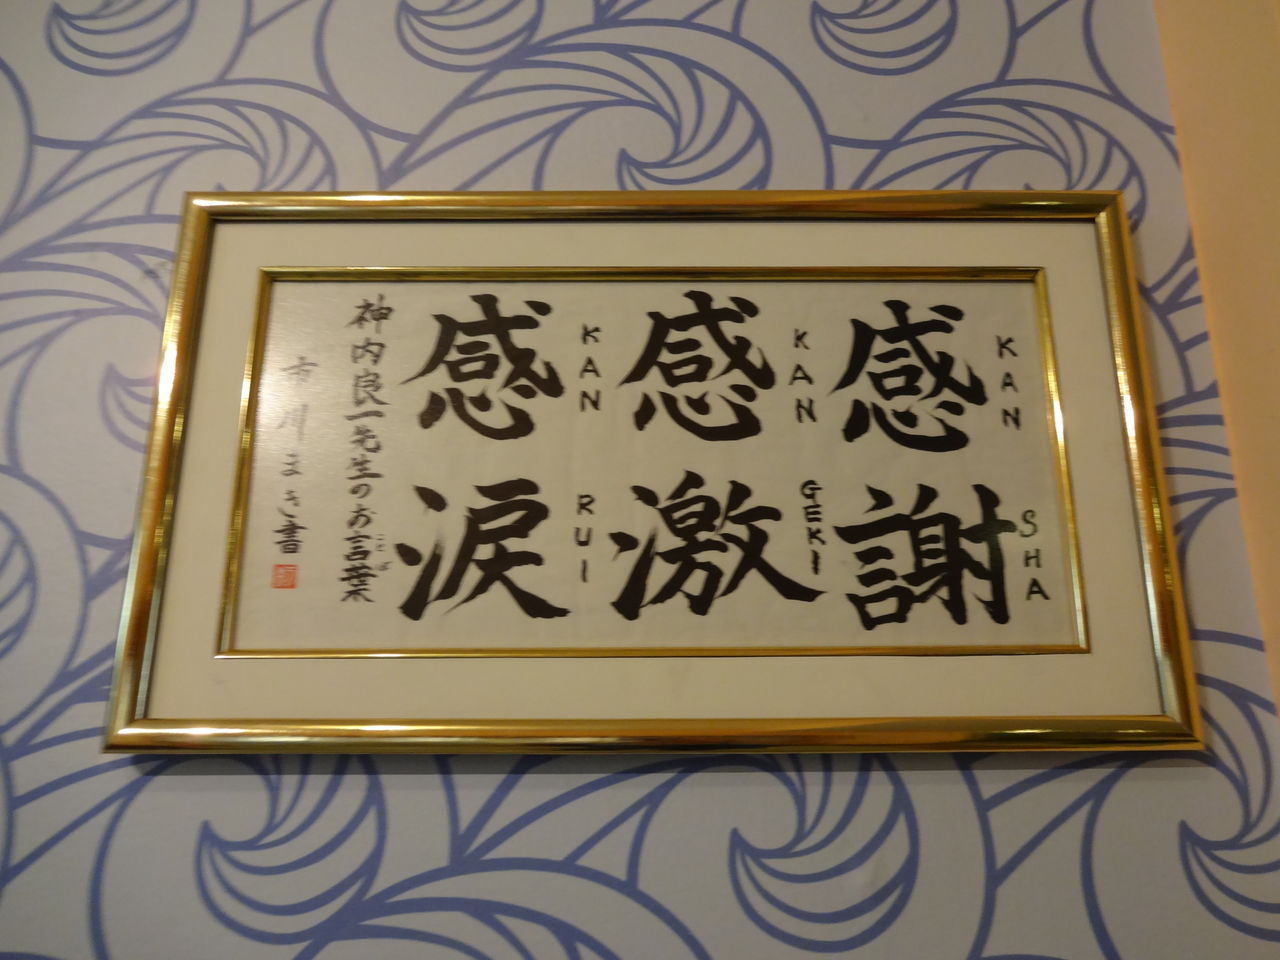 感謝
KAN SHA
感激
KAN GEKI
感涙
KAN RUI
神内良一先生のお言葉
ことば
市川まき書